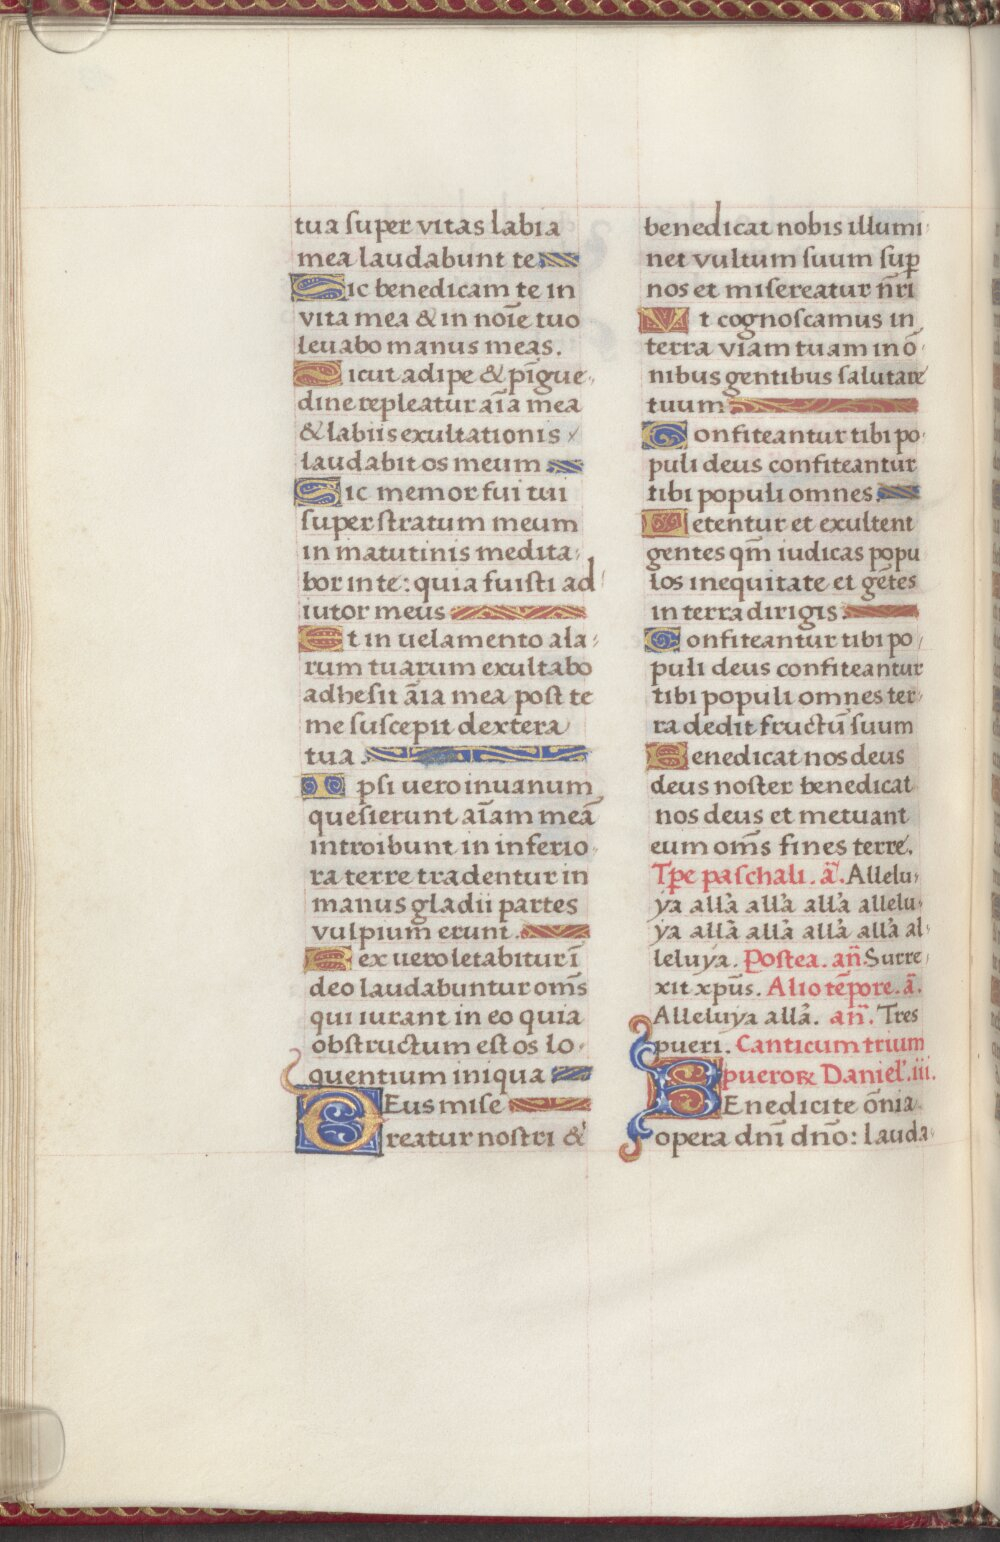 tua super vitas labia
mea laudabunt te
Sic benedicam te in
vita mea & in noīe tuo
levabo manus meas.
Sicut adipe & pīgue-
dine repleatur aīa mea
& labiis exultationis
laudabit os meum
Sic memor fui tui
super stratum meum
in matutinis medita-
bor in te: quia fuisti ad
iutor meus
Et in uelamento ala-
rum tuarum exultabo
adhesit āīa mea post te
me suscepit dextera
tua.
Ipsi uero inuanum
quesierunt aīam meā
introibunt in inferio-
ra terre tradentur in
manus gladii partes
vulpium erunt.
Rex uero letabitur ī
deo laudabuntur om̄s
qui iurant in eo quia
obstructum est os lo-
quentium iniqua
DEus mise
reatur nostri &
benedicat nobis illumi-
net vultum suum suꝑ
nos et misereatur nr̄i
Vt cognoscamus in
terra viam tuam in ō-
nibus gentibus salutare
tuum.
Confiteantur tibi po-
puli deus confiteantur
tibi populi omnes.
Letentur et exultent
gentes qm̄ iudicas popu
los inequitate et gētes
in terra dirigis.
Confiteantur tibi po-
puli deus confiteantur
tibi populi omnes ter-
ra dedit fructū suum
Benedicat nos deus
deus noster benedicat
nos deus et metuant
eum om̄s fines terre.
Tp̄e paschali. ā. Allelu-
ya all̄a all̄a all̄a allelu-
ya all̄a all̄a all̄a all̄a al-
leluya. Postea. an̄. Surre-
xit xp̄us. Alio tēpore. ā.
Alleluya all̄a. an̄. Tres
pueri. Canticum trium
pueroꝝ Daniel'. iii.
BEnedicite ōnia
opera dn̄i dn̄o: lauda-